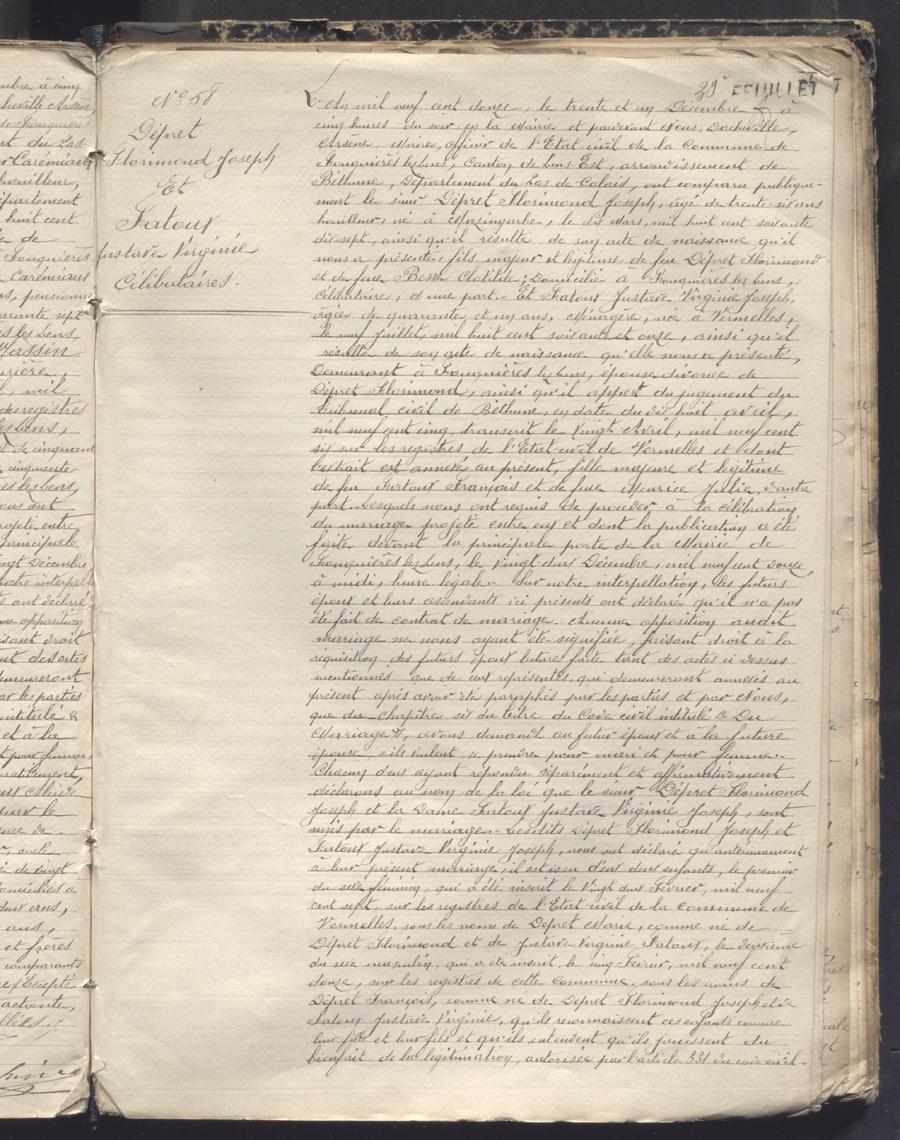 mbre à cinq
de Fouquières
nt du Pas
houilleur,
partement
huit cent
te de
Fouquières
Caremiaux
pensionné
arante sept
ès les Lens,
Massin
il, mil
des registres
les Lens,
de cinquante
cinquante
ès les Lens,
ous ont
rojeté entre
principale
ngt Décembre
notre interpel
ont déclaré
opposition
isant droit
nt des actes
demeureront
par les parties
intitulé
et à la
et pour femme,
mativement,
de vingt
domiciliés à
deux ans,
ans,
et frères
comparants
Excepté
N° 58
Dépret
Florimond Joseph
Et
Fatoux
Justave Virginie
Célibataires.
39e FEUILLET
L'An mil neuf cent douze, le trente et un Décembre à
cinq heures du soir, en la Mairie et pardevant Nous, Dacheville,
Arsène, Maire, officier de l'Etat civil de la Commune de
Fouquières les Lens, Canton de Lens Est, arrondissement de
Béthune, Département du Pas de Calais, ont comparu publique-
ment le sieur Dépret Florimond Joseph, âgé de trente six ans
houilleur, né à Mazingarbe, le dix Mars, mil huit cent soixante
dix sept, ainsi qu'il résulte de son acte de naissance qu'il
nous a présenté; fils majeur et légitime de feu Dépret Florimond
et de feue Besse Clotilde; Domicilié à Fouquières les Lens,
Célibataire, d'une part.- Et Fatoux Justave Virginie Joseph,
âgée de quarante et un ans, Ménagère, née à Vermelles,
le neuf Juillet, mil huit cent soixante et onze, ainsi qu'il
résulte de son acte de naissance qu'elle nous a présenté,
Demeurant à Fouquières les Lens, épouse divorcée de
Dépret Florimond, ainsi qu'il appert du jugement du
tribunal civil de Béthune, en date du dix huit avril,
mil neuf cent cinq, transcrit le vingt Avril, mil neuf cent
six sur les registres de l'Etat-civil de Vermelles et dont
l'extrait est annexé au présent, fille majeure et légitime
de feu Fatoux François et de feue Meurice Julie, d'autre
part. Lesquels nous ont requis de procéder à la célébration
du mariage projeté entre eux et dont la publication a été
faite devant la principale porte de la Mairie de
Fouquières les Lens, le vingt deux Décembre, mil neuf cent douze
à midi, heure légale. Sur notre interpellation, les futurs
époux et leurs ascendants ici présents ont déclaré qu'il n'a pas
été fait de contrat de mariage. Aucune opposition audit
mariage ne nous ayant été signifiée, faisant droit à la
réquisition des futurs époux lecture faite tant des actes ci-dessus
mentionnés que de ceux représentés qui demeureront annexés au
présent après avoir été paraphés par les parties et par Nous,
que du chapitre six du titre du Code civil intitulé « Du
Mariage », avons demandé au futur époux et à la future
épouse s'ils veulent se prendre pour mari et pour femme.
Chacun d'eux ayant répondu séparément et affirmativement
déclarons au nom de la loi que le sieur Dépret Florimond
Joseph et la Dame Fatoux Justave Virginie Joseph, sont
unis par le mariage.- Lesdits Dépret Florimond Joseph et
Fatoux Justave Virginie Joseph, nous ont déclaré qu'antérieurement
à leur présent mariage, il est issu d'eux deux enfants, le premier
du sexe féminin, qui a été inscrit le vingt deux Février, mil neuf
cent sept, sur les registres de l'Etat civil de la commune de
Vermelles, sous les noms de Depret Marie, comme né de
Dépret Florimond et de Justave Virginie Fatoux, le deuxième
du sexe masculin, qui a été inscrit, le cinq Février, mil neuf cent
douze, sur les registres de cette commune, sous les noms de
Dépret François, comme né de Depret Florimond Joseph et de
Fatoux Justave Virginie, qu'ils reconnaissent ces enfants comme
leur fille et leur fils et qu'ils entendent qu'ils jouissent du
bienfait de la légitimation, autorisée par l'article 331 du code civil.-